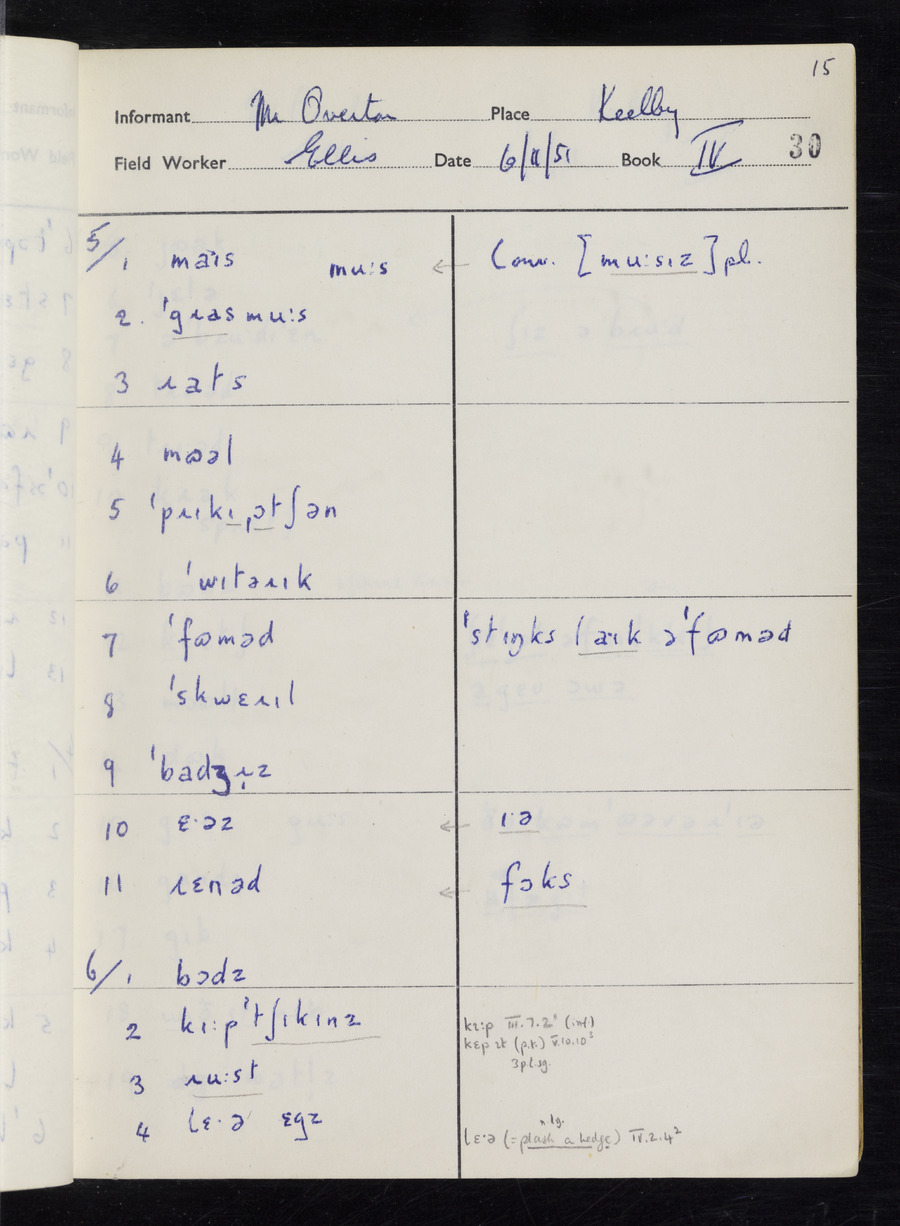 15
Informant Mr Overton Place Keelby
Field Worker Ellis Date 6/11/51 Book IV 30
5/1 maɪs mu:s ← Conv. [mu:sɪz] pl.
2. ˈgɹasmu:s
3 ɹats
4 mɷəl
5 ˈpɹɪkɪˌɔtʃən
6 ˈwɪtəɹɪk
7 ˈfɷməd ˈstɪŋks laɪk əˈfɷməd
8 ˈskwɛɹɪl
9 ˈbadʒɹ̩z
10 ɛ·əz ← ɪ·ə
11 ɹɛnəd ← fɔks
6/1 bɔdz
2 kɪ:pˈtʃɪkɪnz kɪ:p III.7.2 (inf.)
kɛp ɪt (p.t.) V.10.10³
3 p.l. sg.
3 ɹu:st
4 lɛ·ə ɛgz
n. lg.
lɛ·ə (= plash a hedge) IV.2.4²